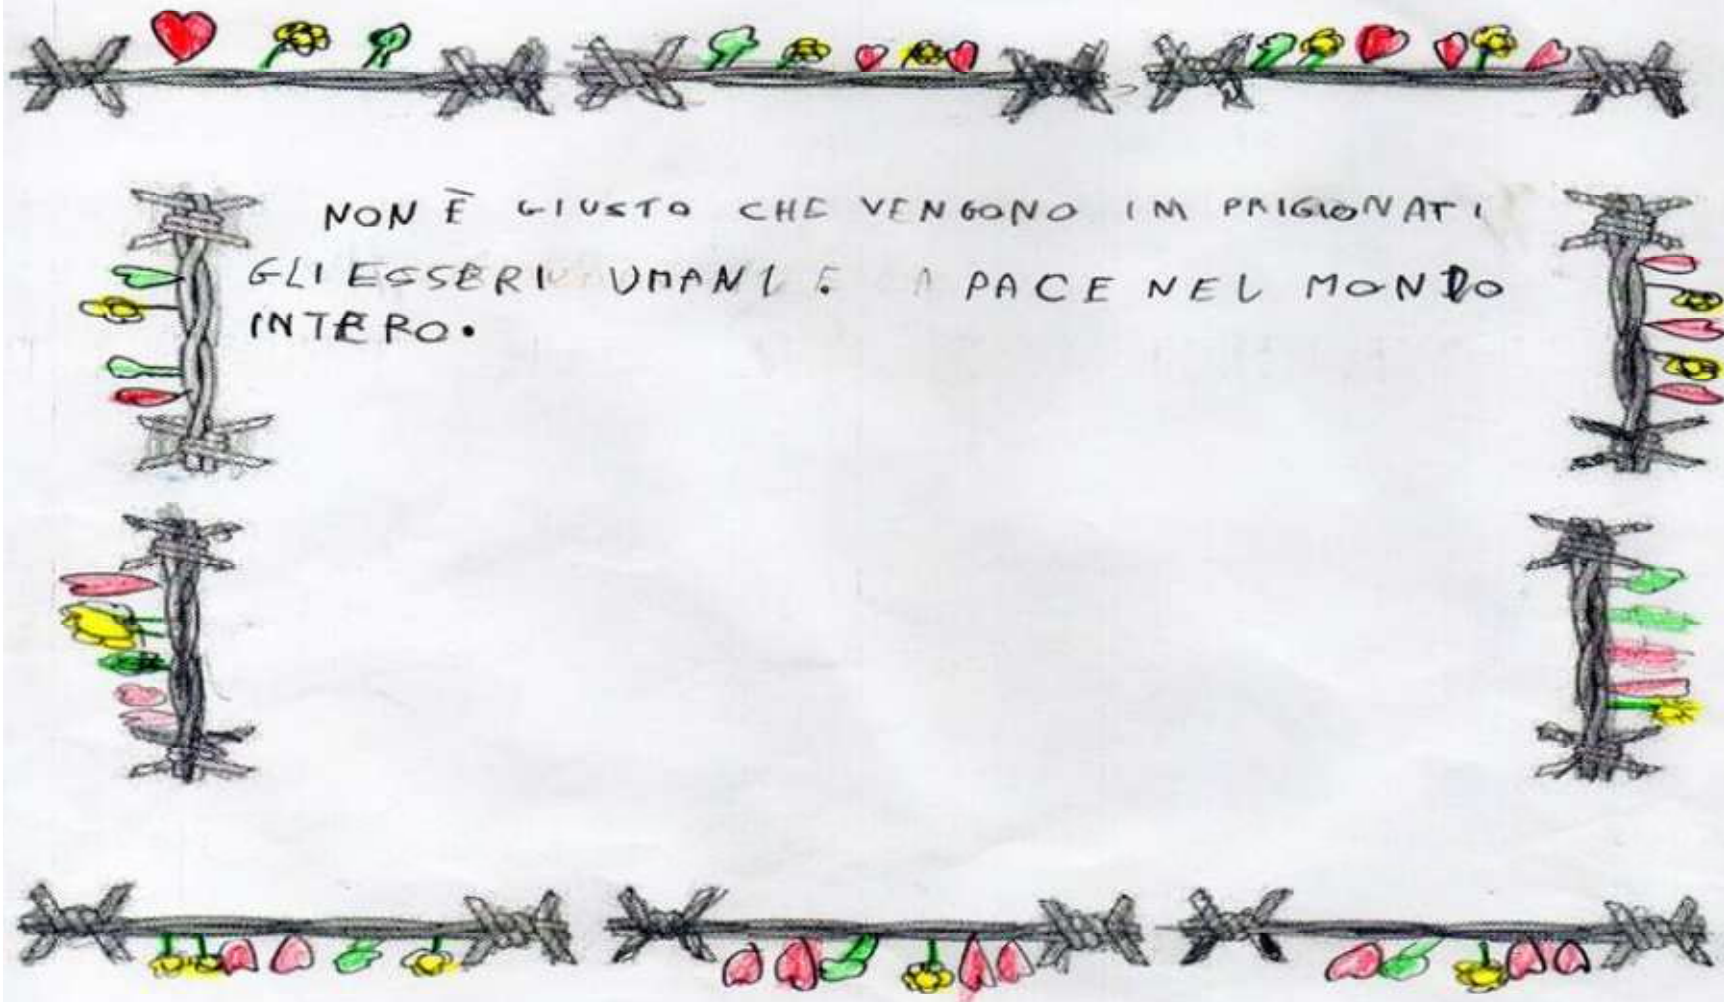 NON È GIUSTO CHE VENGONO IM PRIGIONATI
GLI ESSERI UMANI E PACE NEL MONDO
INTERO.